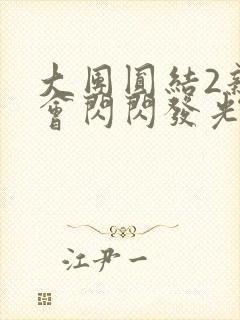 大團圓結2新
會閃閃發光
江尹一